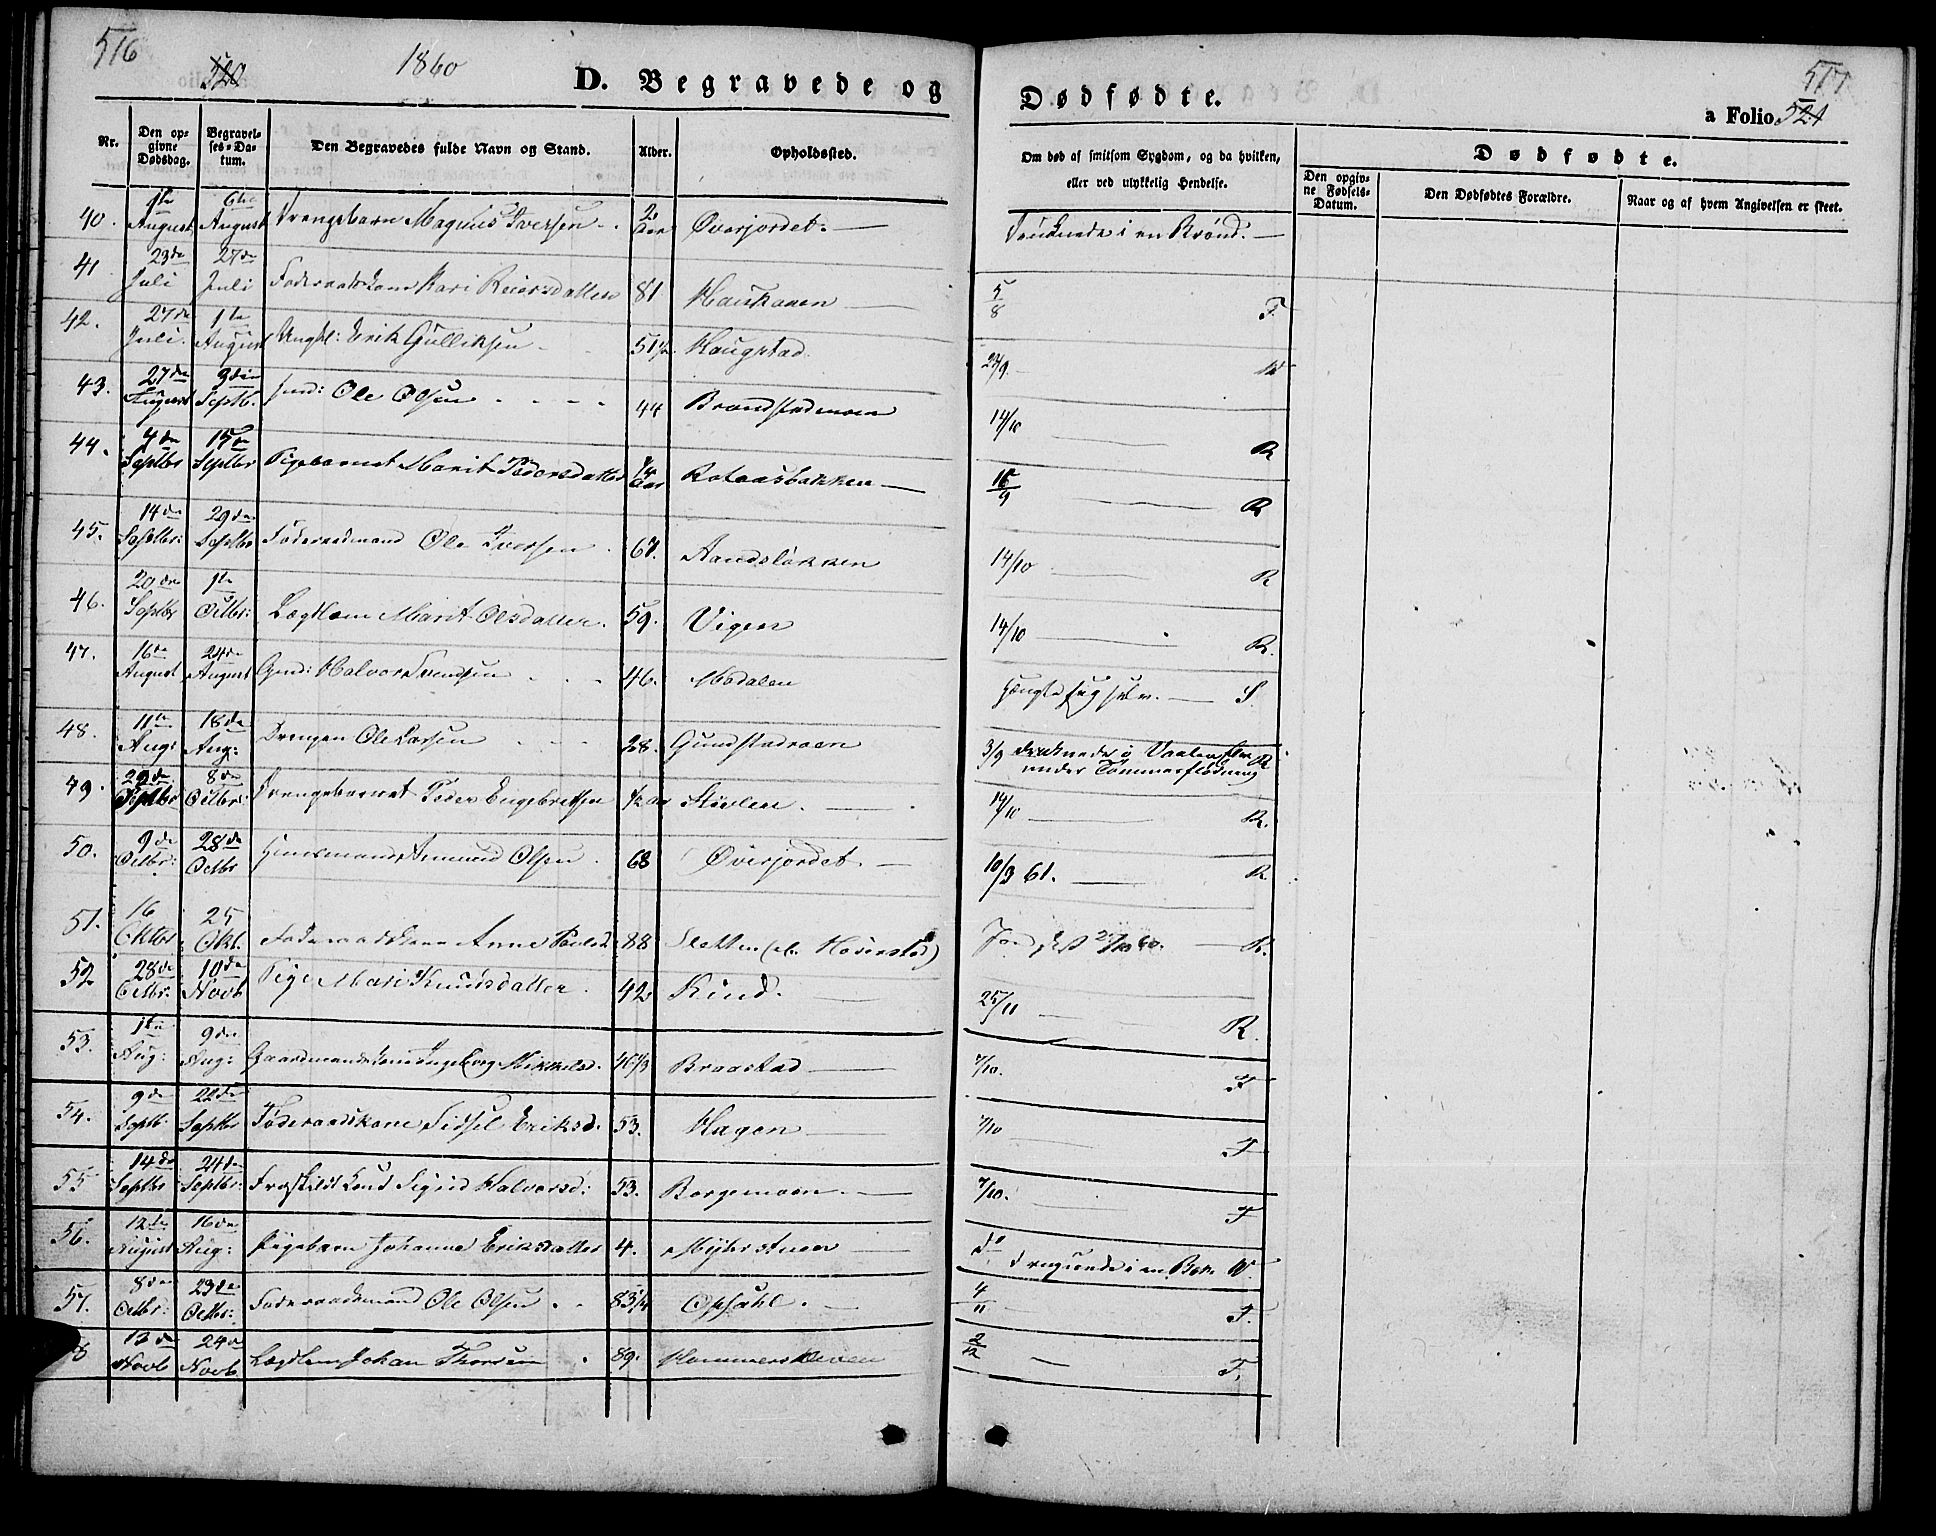 516
520
1860
D. Begravede og
Dødfødte.
517
a Folio 521
Nr.
Den opgivne Dødsdag.
Begravelses-Datum.
Den Begravedes fulde Navn og Stand.
Alder.
Opholdssted.
Om død af smitsom Sygdom, og da hvilken, eller ved ulykkelig Hendelse.
Dødfødte.
Den opgivne Fødsels-Datum.
Den Dødfødtes Forældre.
Naar og af hvem Angivelsen er skeet.
40. 1te August 6te August Drengebarn Magnus Iversen 2 Aar Øverjordet. Druknede i en Brønd.
41 23de Juli 27de Juli Føderaadskone Kari Reiersdatter 81 Haukaaen 5/8 F.
42. 27de Juli. 1te August Ungkl: Erik Gulliksen 51 1/2 Haugstad. 23/9
43. 27de August 3die Septb. Ind: Ole Olsen 44 Brandstadmoen 14/10 R
44. 4de Septbr 15de Septbr Pigebarnet Marit Pedersdatter 1/4 Aar Rotaasbakken 16/9 R
45. 14de Septbr: 29de Septbr Føderaadmand Ole Iversen 67. Aandsløkken 14/10 R
46. 20de Septbr 1te Octbr: Lægdlem Marit Olsdatter. 59. Vigen 14/10 R.
47. 16de August 24de August Gmd: Halvor Svendsen 46. Modalen Hængte sig selv. S.
48. 11te Aug: 18de Aug: Drengen Ole Larsen 28. Gundstadroen 3/9 druknede i Vaalengselven under Tømmerflødning R
49. 29de Septbr 8de Octbr: Drengebarnet Peder Engebretsen 1/2 Aar Støvlen. 14/10 R.
50. 9de Octbr: 28de Octbr Huusmand Amund Olsen 68 Øverjordet 10/3 61. R.
51. 16 Oktbr 25 Okt. Føderaadskone Anne Paulsd. 88 Sletten Jordf. 60. R.
52. 28de Octbr: 10de Novb Pige Mari Knudsdatter. 42 Rind. 25/11 R.
53. 1te Aug: 9de Aug: Gaardmandskone Ingeborg Mikkelsd. 46 1/3 Braastad 7/10. F
54. 9de Septb: 22de Septbr Føderaadskone Sidsel Eriksd. 53. Hagen 7/10 F
55 14de Septbr 24de Septbr: Fraskildt Kone Sigrid Halvorsd: 53. Borgemoen. 7/10. F
56. 12te August 16de Aug: Pigebarn Johanne Eriksdatter 4. Myhrstuen do druknede i en Bæk W.
57. 8de Octbr: 23de Octbr: Føderaadsmand Ole Olsen 83 1/4 Opsahl. 4/11 F.
58 13de Novb 24de Novb Lægdlem Johan Thorsen 89. Hammershaven 2/12 F.